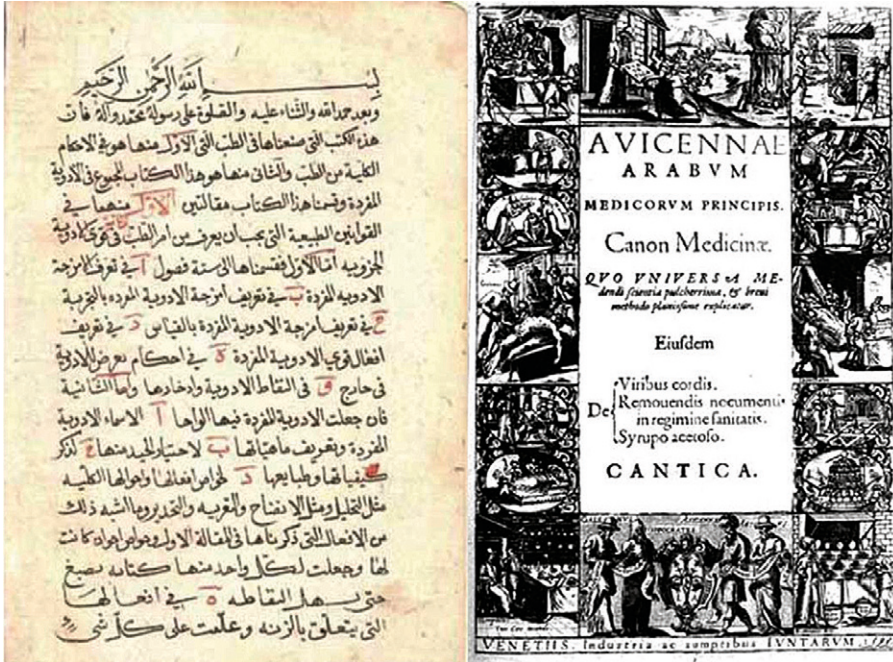 بسم الله الرحمن الرحيم
وبعد حمد الله والثناء عليه والصلوة على رسوله محمد وآله فان
هذه الكتب التى صنعناها فى الطب التى الاول منها هو فى الاحكام
الكلية من الطب والثانى منها هو هذا الكتاب المجموع فى الادوية
المفردة وقسمنا هذا الكتاب مقالتين الاولى منهما فى
القوانين الطبيعية التى يجب ان يعرف من امر الطب فى قوى الادوية
الجزويه اما الاول فقسمناها الى ستة فصول آ فى تعرف امزجة
الادويه المفردة ب فى تعريف امزجة الادوية المفرده بالتجربة
ج فى تعريف امزجة الادوية المفردة بالقياس د فى تعريف
افعال قوى الادوية المفردة ه فى احكام يعرض للادوية
فى خارج و فى التقاط الادوية وادخارها واما الثانية
فان جعلت الادوية المفردة فيها الواحا آ الاسماء الادوية
المفردة وتعريف ماهياتها ب لاختيار الجيد منها ج لذكر
كيفياتها وطبايعها د لخواص افعالها واحوالها الكليه
مثل التحليل ومثل الانضاج والتغريه والتخدير وما اشبه ذلك
من الافعال التى ذكرناها فى المقالة الاولى وخواص اخر ان كانت
لها وجعلت لكل واحد منها كتابه بصبغ
حتى يسهل التقاطه ه فى افعالها
التى يتعلق بالزينه وعلمت على كل شئ
AVICENNAE
ARABVM
MEDICORVM PRINCIPIS.
Canon Medicinæ.
QVO VNIVERSA ME-
dendi scientia pulcherrima, & breui
methodo planissime explicatur.
Eiusdem
De
Viribus cordis.
Remouendis nocumentis
in regimine sanitatis.
Syrupo acetoso.
CANTICA.
VENETIIS. Industria ac sumptibus IVNTARVM.